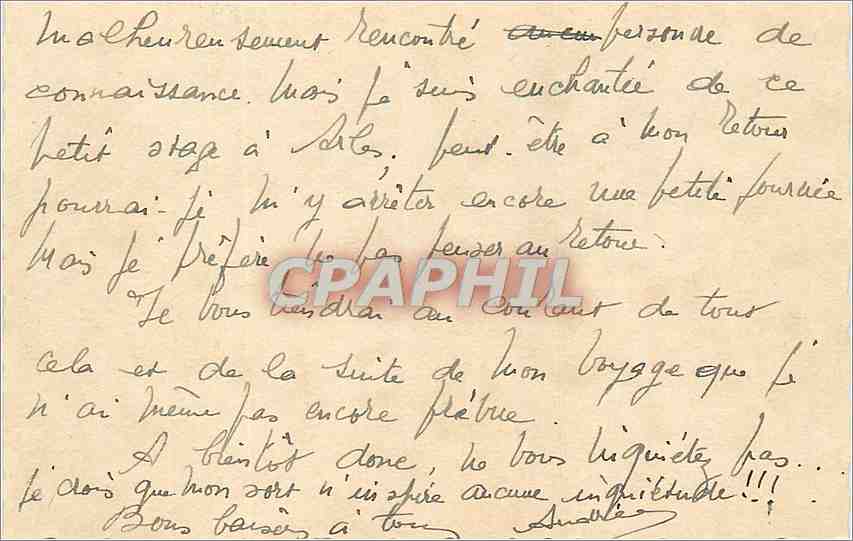 malheureusement rencontré aucun personne de
connaissance. Mais je suis enchantée de ce
petit stage à Arles. peut-être à mon retour
pourrai-je m'y arrêter encore une petite journée
mais je préfère ne pas penser au retour.
CPAPHIL
Je vous tiendrai au courant de tout
cela et de la suite de mon voyage que je
n'ai même pas encore prévue.
A bientôt donc, ne vous inquiétez pas..
je crois que mon sort n'inspire aucune inquiétude!!!
Bons baisers à tous Andrée